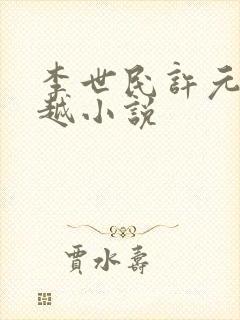 李世民許元
越小説
賈水壽